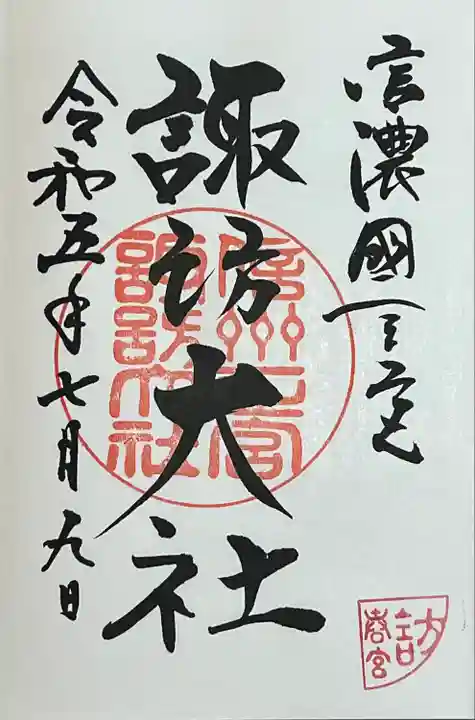 信濃國一之宮
諏訪大社
信州一宮
諏訪大社
令和五年七月九日
訪
春宮